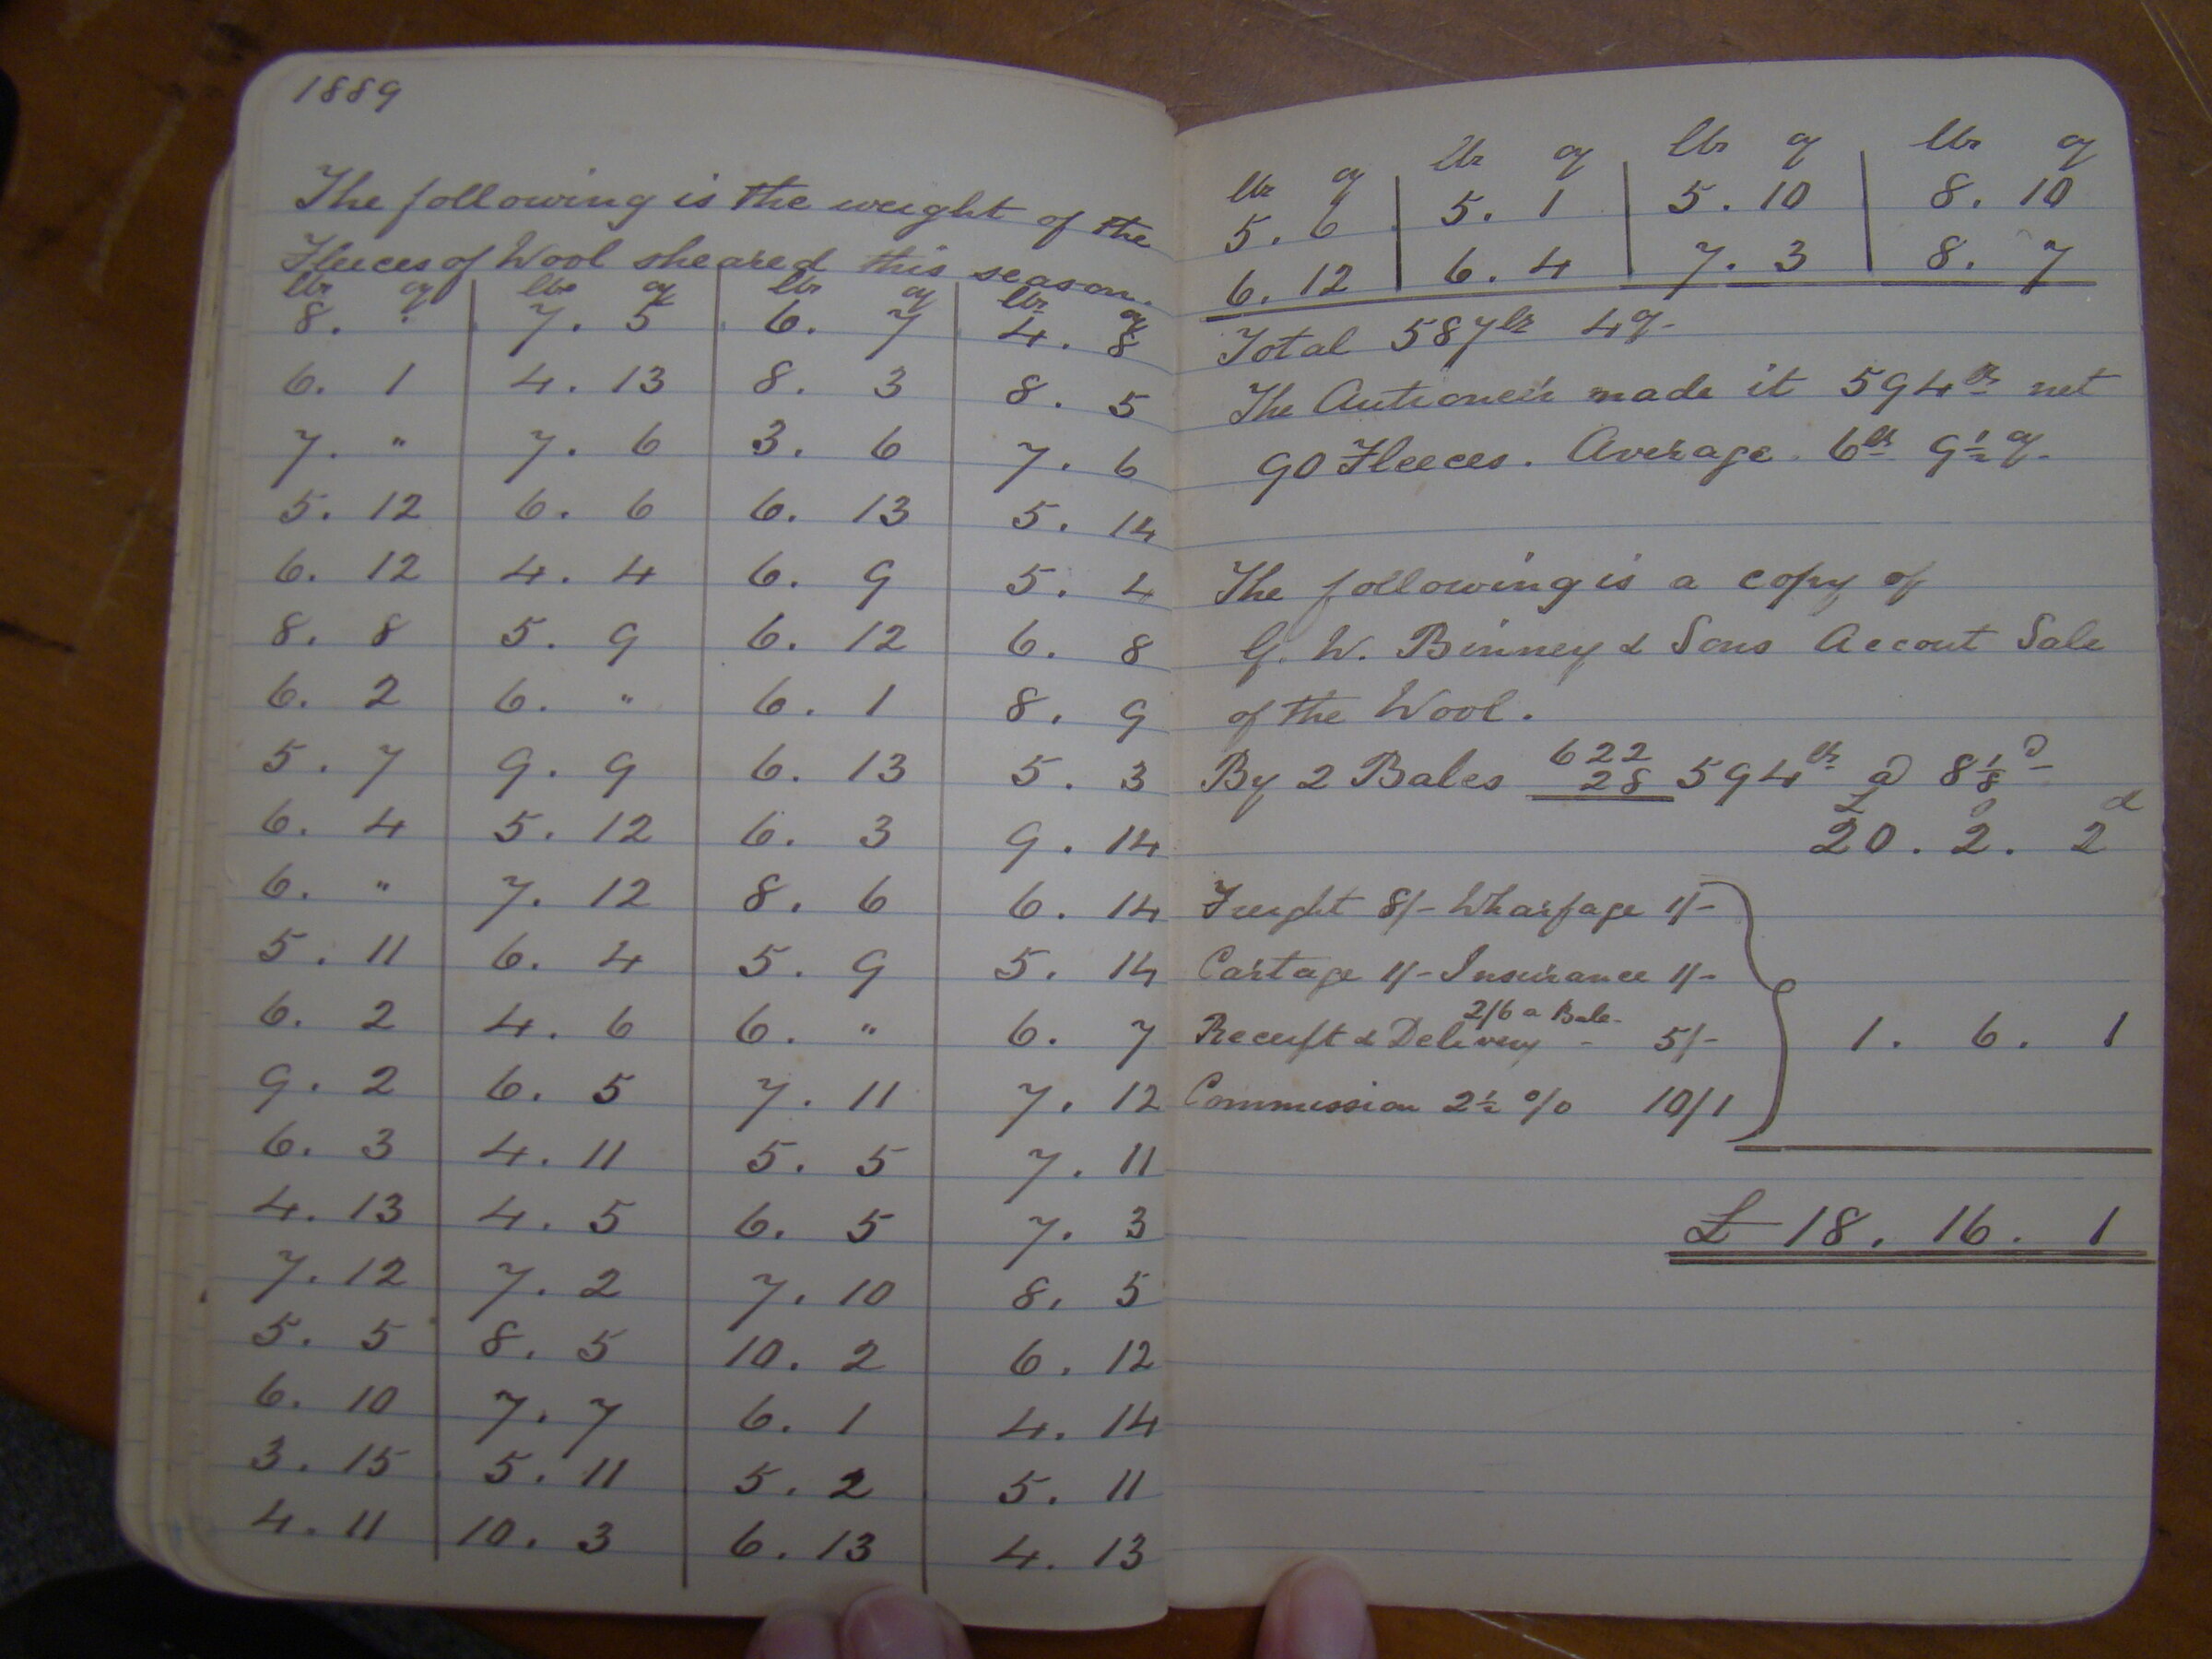 1889
The following is the weight of the
Fleeces of Wool sheared this season.
lbs oz lbs oz lbs oz lbs oz
8. " 7. 5 6. 7 4. 8
6. 1 4. 13 8. 3 8. 5
7. " 7. 6 3. 6 7. 6
5. 12 6. 6 6. 13 5. 14
6. 12 4. 4 6. 9 5. 4
8. 8 5. 9 6. 12 6. 8
6. 2 6. " 6. 1 8. 9
5. 7 9. 9 6. 13 5. 3
6. 4 5. 12 6. 3 9. 14
6. " 7. 12 8. 6 6. 14
5. 11 6. 4 5. 9 5. 14
6. 2 4. 6 6. " 6. 7
9. 2 6. 5 7. 11 7. 12
6. 3 4. 11 5. 5 7. 11
4. 13 4. 5 6. 5 7. 3
7. 12 7. 2 7. 10 8. 5
5. 5 8. 5 10. 2 6. 12
6. 10 7. 7 6. 1 4. 14
3. 15 5. 11 5. 2 5. 11
4. 11 10. 3 6. 13 4. 13
lbs oz lbs oz lbs oz lbs oz
5. 6 5. 1 5. 10 8. 10
6. 12 6. 4 7. 3 8. 7
Total 587lbs 4oz
The Autioneir made it 594lbs net
90 Fleeces. Average 6lbs 9½oz
The following is a copy of
G. W. Binney & Sons Accout Sale
of the Wool.
By 2 Bales 622 28 594lbs @ 8⅛d
£ s d
20. 2. 2
Freight 8/- Wharfage 1/-
Cartage 1/- Insurance 1/-
2/6 a Bale
Receipt & Delivery - 5/- 1. 6. 1
Commission 2½ % 10/1
£ 18. 16. 1